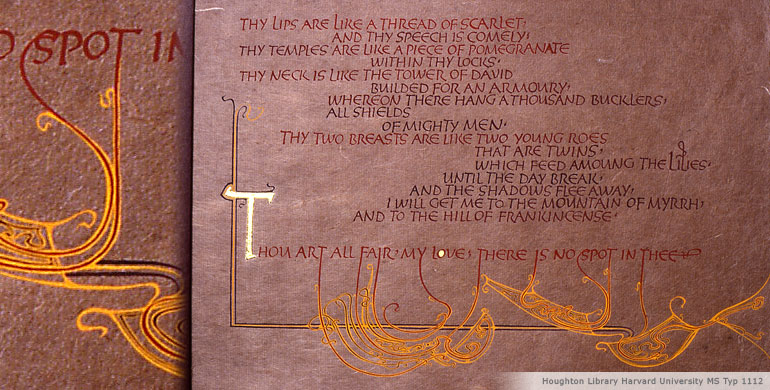 O SPOT IN
THY LIPS ARE LIKE A THREAD OF SCARLET,
AND THY SPEECH IS COMELY,
THY TEMPLES ARE LIKE A PIECE OF POMEGRANATE
WITHIN THY LOCKS,
THY NECK IS LIKE THE TOWER OF DAVID
BUILDED FOR AN ARMOURY,
WHEREON THERE HANG A THOUSAND BUCKLERS,
ALL SHIELDS
OF MIGHTY MEN,
THY TWO BREASTS ARE LIKE TWO YOUNG ROES
THAT ARE TWINS,
WHICH FEED AMOUNG THE LILIES,
UNTIL THE DAY BREAK,
AND THE SHADOWS FLEE AWAY,
I WILL GET ME TO THE MOUNTAIN OF MYRRH,
AND TO THE HILL OF FRANKINCENSE,
THOU ART ALL FAIR, MY LOVE, THERE IS NO SPOT IN THEE
Houghton Library Harvard University MS Typ 1112